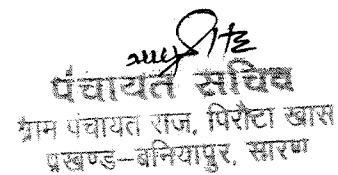 पंचायत सचिव
ग्राम पंचायत राज, पिरौटा खास
प्रखण्ड-बनियापुर, सारण